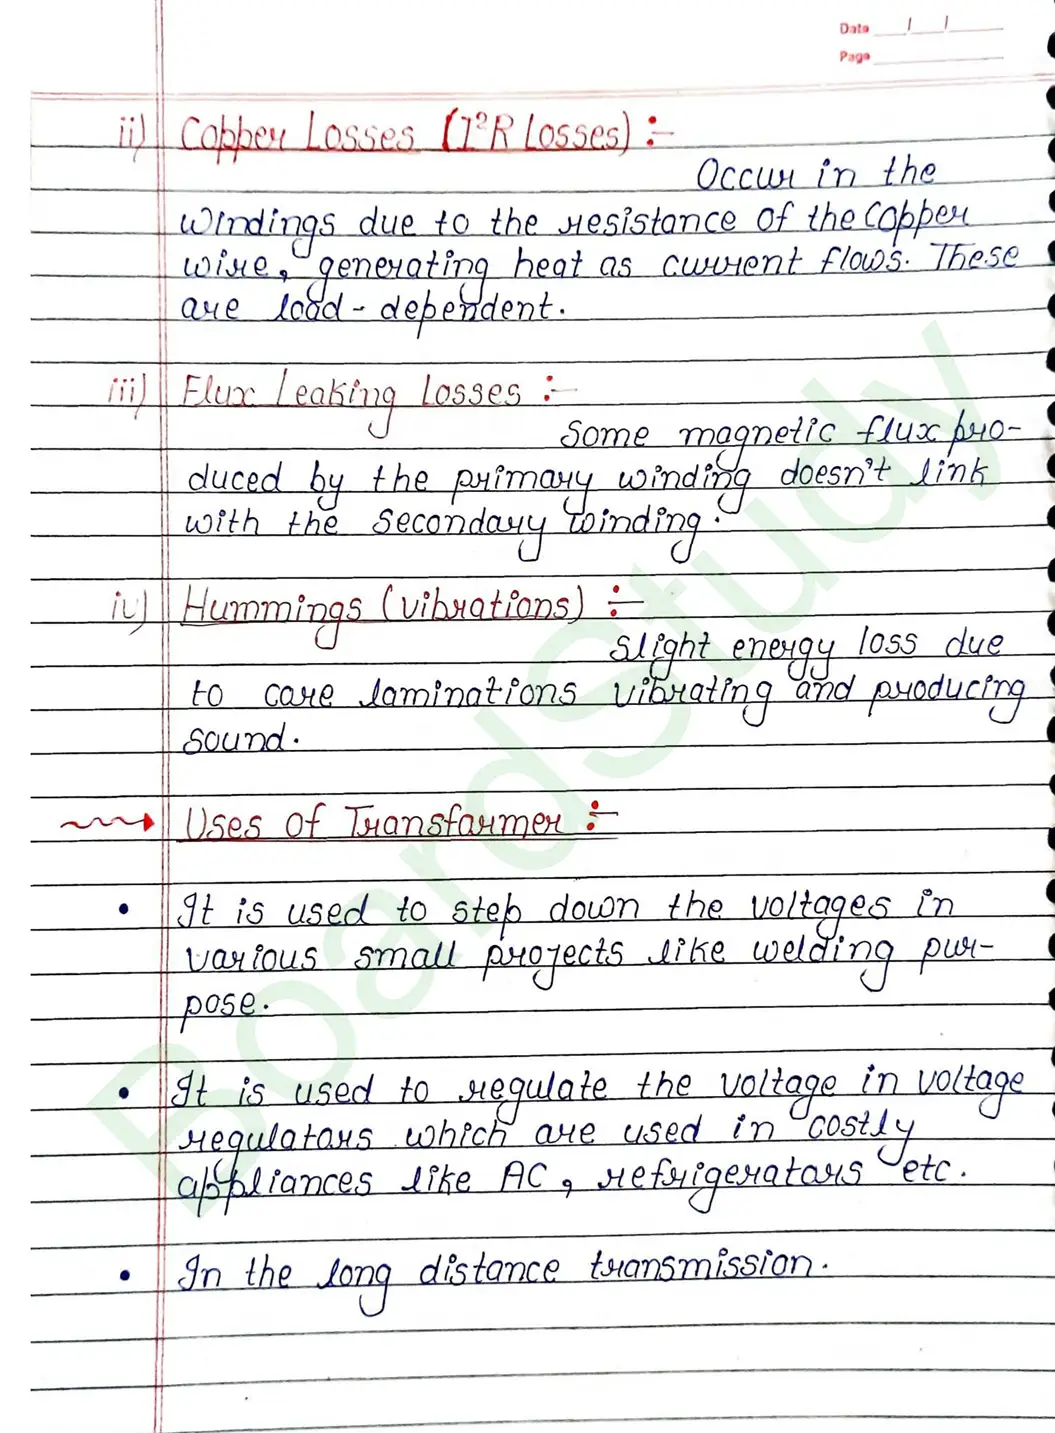 Date
Page
ii) Copper Losses (I²R Losses) :-
Occur in the
windings due to the resistance of the Copper
wire, generating heat as current flows. These
are load-dependent.
iii) Flux Leaking Losses :-
Some magnetic flux pro-
duced by the primary winding doesn't link
with the secondary winding.
iv) Hummings (vibrations) :-
Slight energy loss due
to core laminations vibrating and producing
sound.
Uses of Transformer :-
• It is used to step down the voltages in
various small projects like welding pur-
pose.
• It is used to regulate the voltage in voltage
regulators which are used in costly
appliances like AC, refrigerators etc.
• In the long distance transmission.
BoardStudy